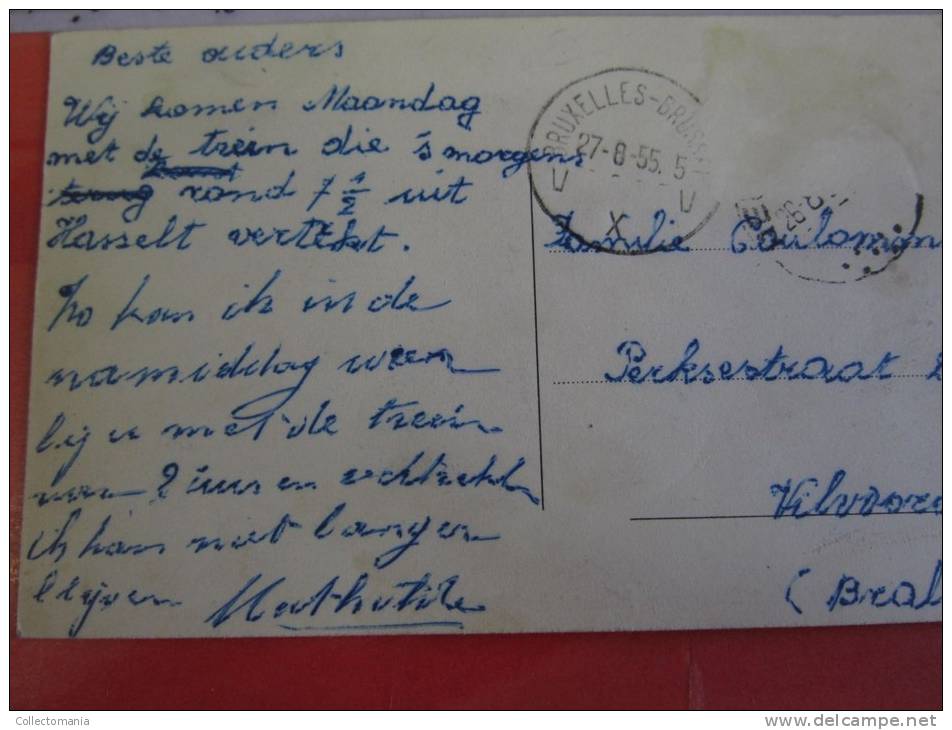 Beste ouders
Wij komen Maandag
met de trein die 's morgens
rond 7 1/2 uit
Hasselt vertrekt.
Zo kan ik in de
namiddag
bij u met de trein
van
ik kan niet langer
blijven Mathilde
BRUXELLES-BRUSSEL
27-8-55. 5
V V
X
26-8
Familie
Perksestraat
Vilvoord
(Brab
Collectomania